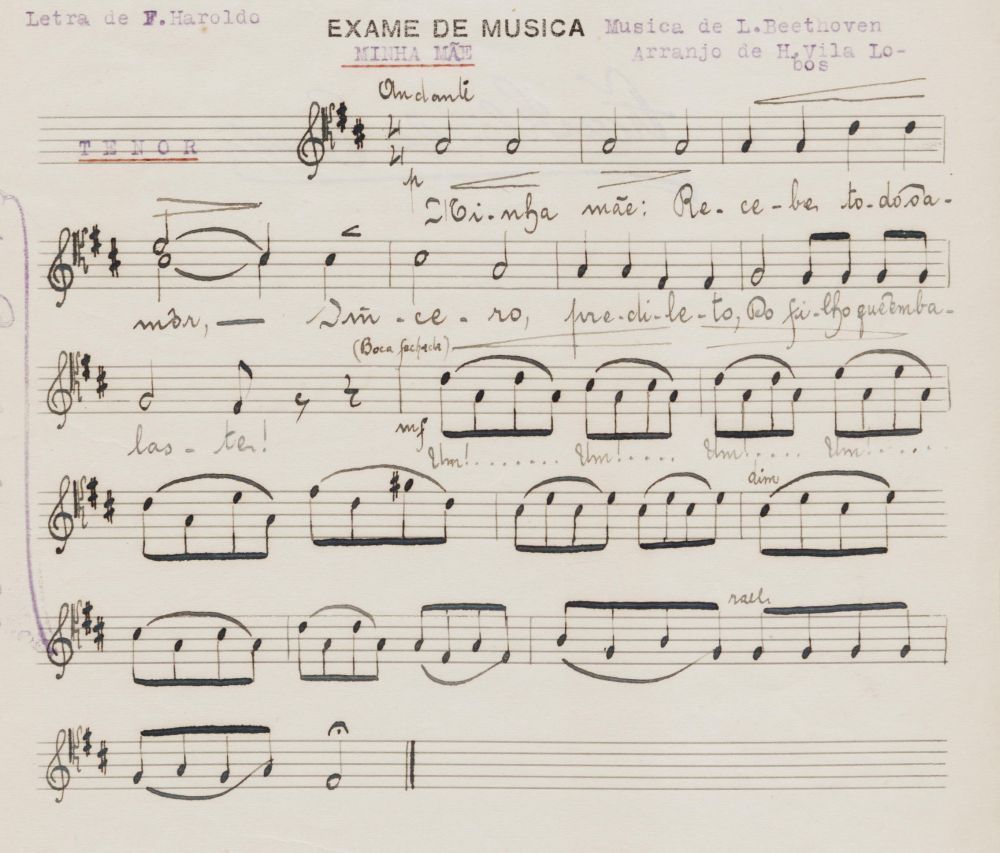 Letra de F.Haroldo
EXAME DE MUSICA
Musica de L.Beethoven
MINHA MÃE
Arranjo de H.Vila Lo-
bos
Andante
TENOR
p
Minha mãe: Re-ce-be to-do o a-
môr,— Sin-ce-ro, pre-di-le-to, Do fi-lho que em ba-
(Boca fechada)
mf
las-te!
Um!....... Um!.... Um!..... Um!......
dim
rall.